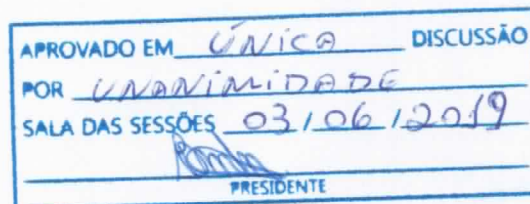 APROVADO EM ÚNICA DISCUSSÃO
POR UNANIMIDADE
SALA DAS SESSÕES 03/06/2019
PRESIDENTE